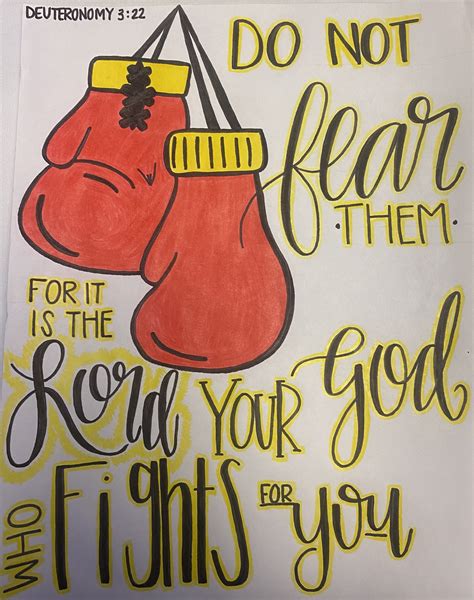 DEUTERONOMY 3:22
DO NOT
fear
·THEM·
FOR IT
IS THE
Lord YOUR God
WHO Fights FOR you